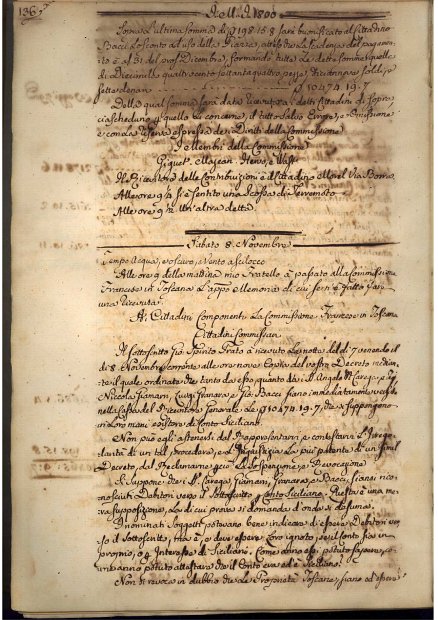 136
Dell'A. 1800
Sopra l'ultima somma di p 198.15.8 sarà buonificato al Cittadino
Bacci lo sconto ad uso della Piazza, atteso la scadenza del pagamento
è a 31 del pros.o Dicembre, formando tutte le dette somme quelle
di Diecimila quattrocento settantaquattro, pezze diecinnove soldi, e
sette denari p 10474.19.7
Della qual somma sarà data ricevuta a detti Cittadini di sopra,
ciascheduno quello lo concerne, il tutto salvo Errore, e Omissione
e con la riserva espressa dei Diritti della Commissione
I Membri della Commissione
Mazean. Henry
Il Ricevitore delle Contribuzioni è il Cittadino Morel Via Borra
Alle ore 9½ si è sentito una scossa di Terremoto
Alle ore 9½ un'altra detta
Sabato 8. Novembre
Tempo Acqua, e oscuro, e Vento a scilocco
Alle ore 9 della matina mio Fratello à passato alla Commissione
Francese in Toscana l'appo Memoria di cui se n'è fatto fare
una Ricevuta.
Ai Cittadini Componenti la Commissione Francese in Toscana
Cittadini Commissari
Il Sottoscritto Gio Spirito Prato à ricevuto la notte del dì 7 venendo il
dì 8 Novembre corrente alle ore nove Copia del vostro Decreto median-
te il quale ordinate che tanto da esso, quanto dai S. Angelo M. Carega, e
Niccola Gianieri, Luigi Granara e Gio Bacci siano immediatamente versate
nella Cassa del Ricevitore Generale le p 10474.19.7, che si suppongono
in loro mani esistere di Conto Siciliano.
Non può egli astenersi dal rappresentarvi, e contestarvi l'irrego-
larità di un tal procedere, e l'ingiustizia la più patente di un simil
Decreto, dal reclamarne la Sospensione, e Revocazione
Si suppone che i S. Carega, Gianieri, Granara, e Bacci, siansi rico-
nosciuti Debitori verso il Sottoscritto di Conto Siciliano. Questa è una me-
ra supposizione, la di cui prova si domanda d'onde si desuma.
I nominati Soggetti potevano bene indicare di essere Debitori ver-
so il Sottoscritto, ma è, e deve essere loro ignoto, se il conto sia in
proprio, o di Interesse di Siciliani. Come anno essi potuto sapere, co-
me anno potuto attestare che il Conto era ed è Siciliano?
Non si revoca in dubbio che le Proprietà Toscane, siano ed essere